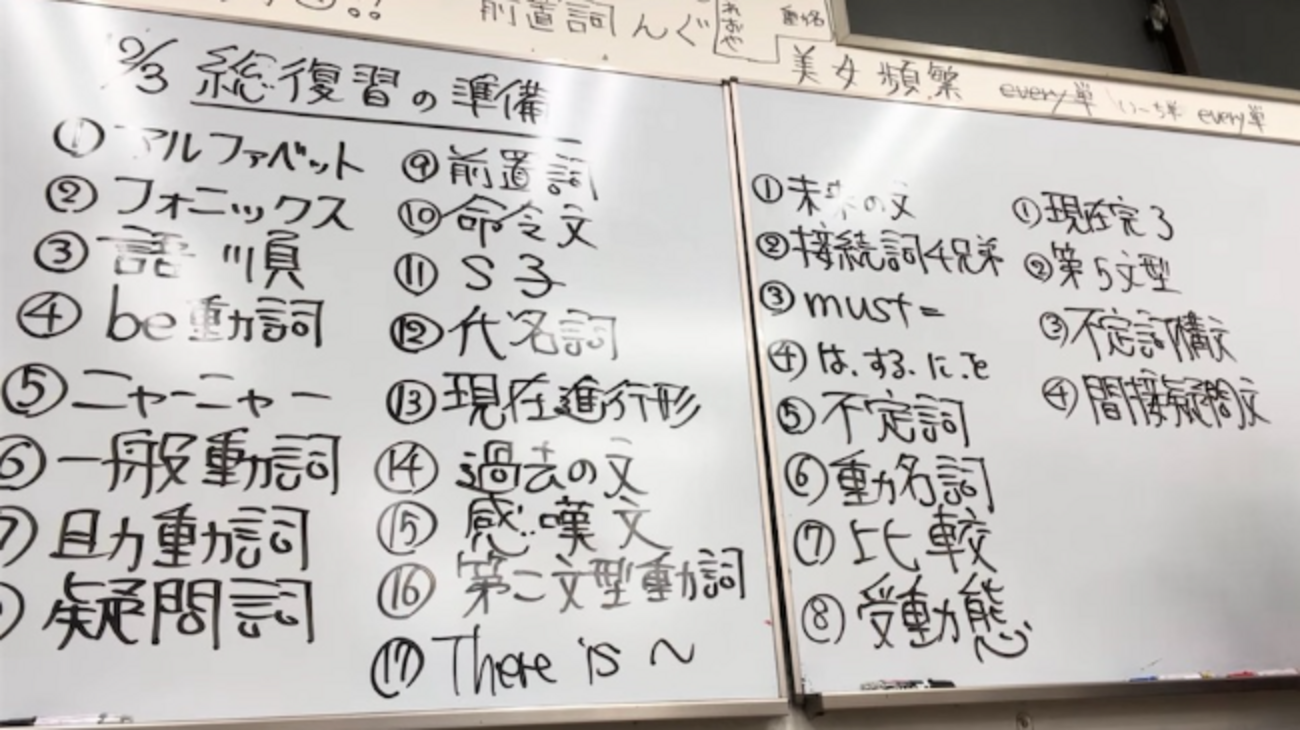 前置詞 んぐ
美女頻繁 every単 いーち単 every単
2/3 総復習の準備
① アルファベット
② フォニックス
③ 語順
④ be動詞
⑤ ニャーニャー
⑥ 一般動詞
⑦ 助動詞
疑問詞
⑨ 前置詞
⑩ 命令文
⑪ S子
⑫ 代名詞
⑬ 現在進行形
⑭ 過去の文
⑮ 感嘆文
⑯ 第二文型動詞
⑰ There is ~
① 未来の文
② 接続詞4兄弟
③ must =
④ は.する.に.を
⑤ 不定詞
⑥ 動名詞
⑦ 比較
⑧ 受動態
① 現在完了
② 第5文型
③ 不定詞構文
④ 間接疑問文